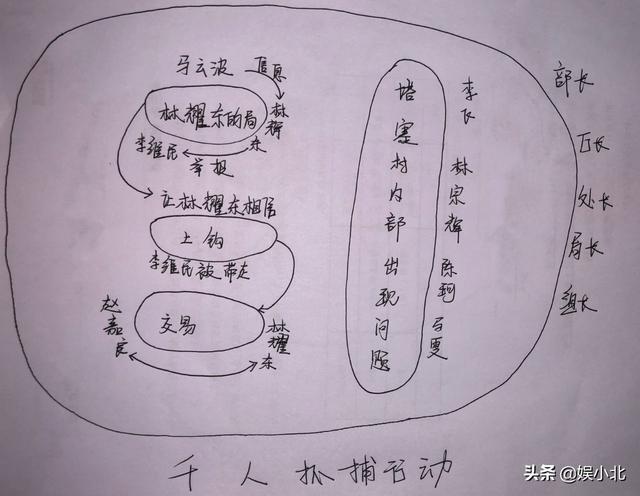 马云波
林耀东的局
李维民
举报
让林耀东相信
上钩
李维民被带走
交易
赵嘉良
林耀东
塔寨村内部出现问题
李飞 林宗辉 陈珂
部长
厅长
处长
局长
组长
千人抓捕行动
头条 @娱小北